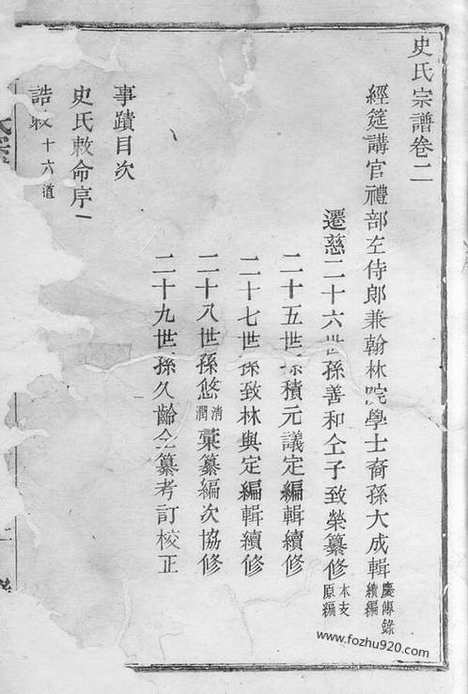 史氏宗譜卷二
經筵講官禮部左侍郎兼翰林院學士裔孫大成輯慶傳錄續編
遷慈二十六世孫善和仝子致榮纂修本支原編
二十五世孫積元議定編輯續修
二十七世孫致林與定編輯續修
二十八世孫悠清潤彙纂編次協修
二十九世孫久齡仝纂考訂校正
事蹟目次
史氏敕命序一
誥敕十六道
www.fozhu920.com